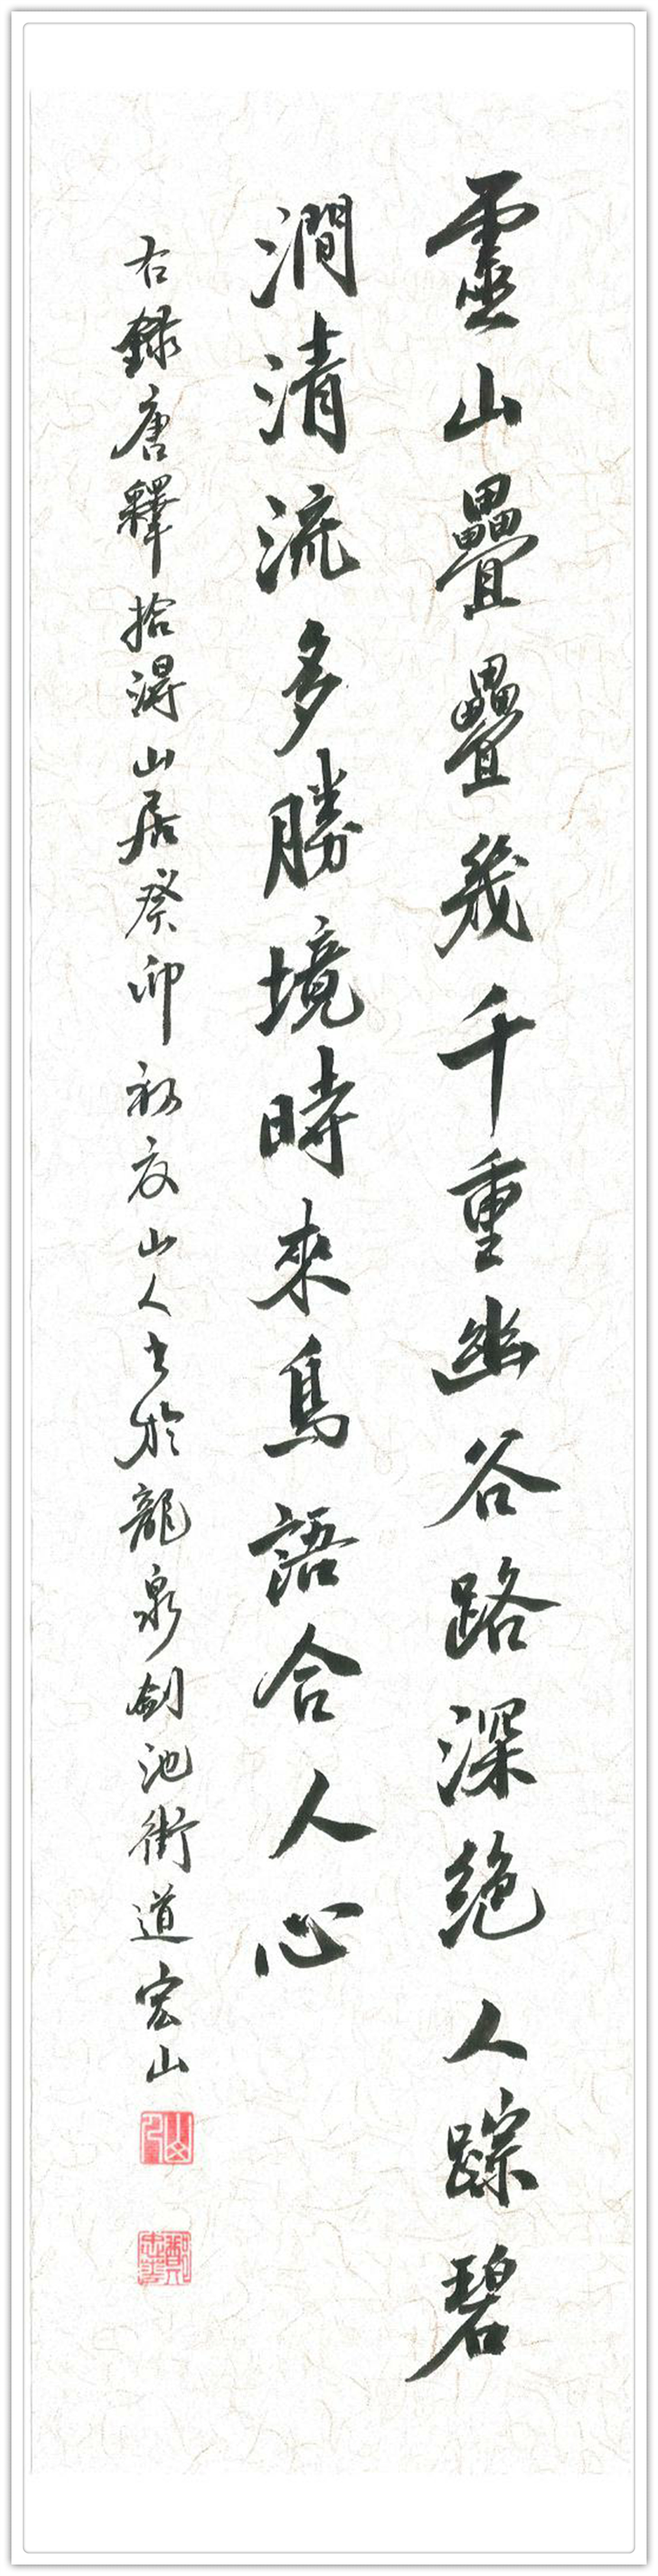 靈山疊疊幾千重幽谷路深絕人踪碧
澗清流多勝境時來鳥語合人心
右録唐釋拾得山居癸卯初夜山人書於龍泉劍池街道宏山